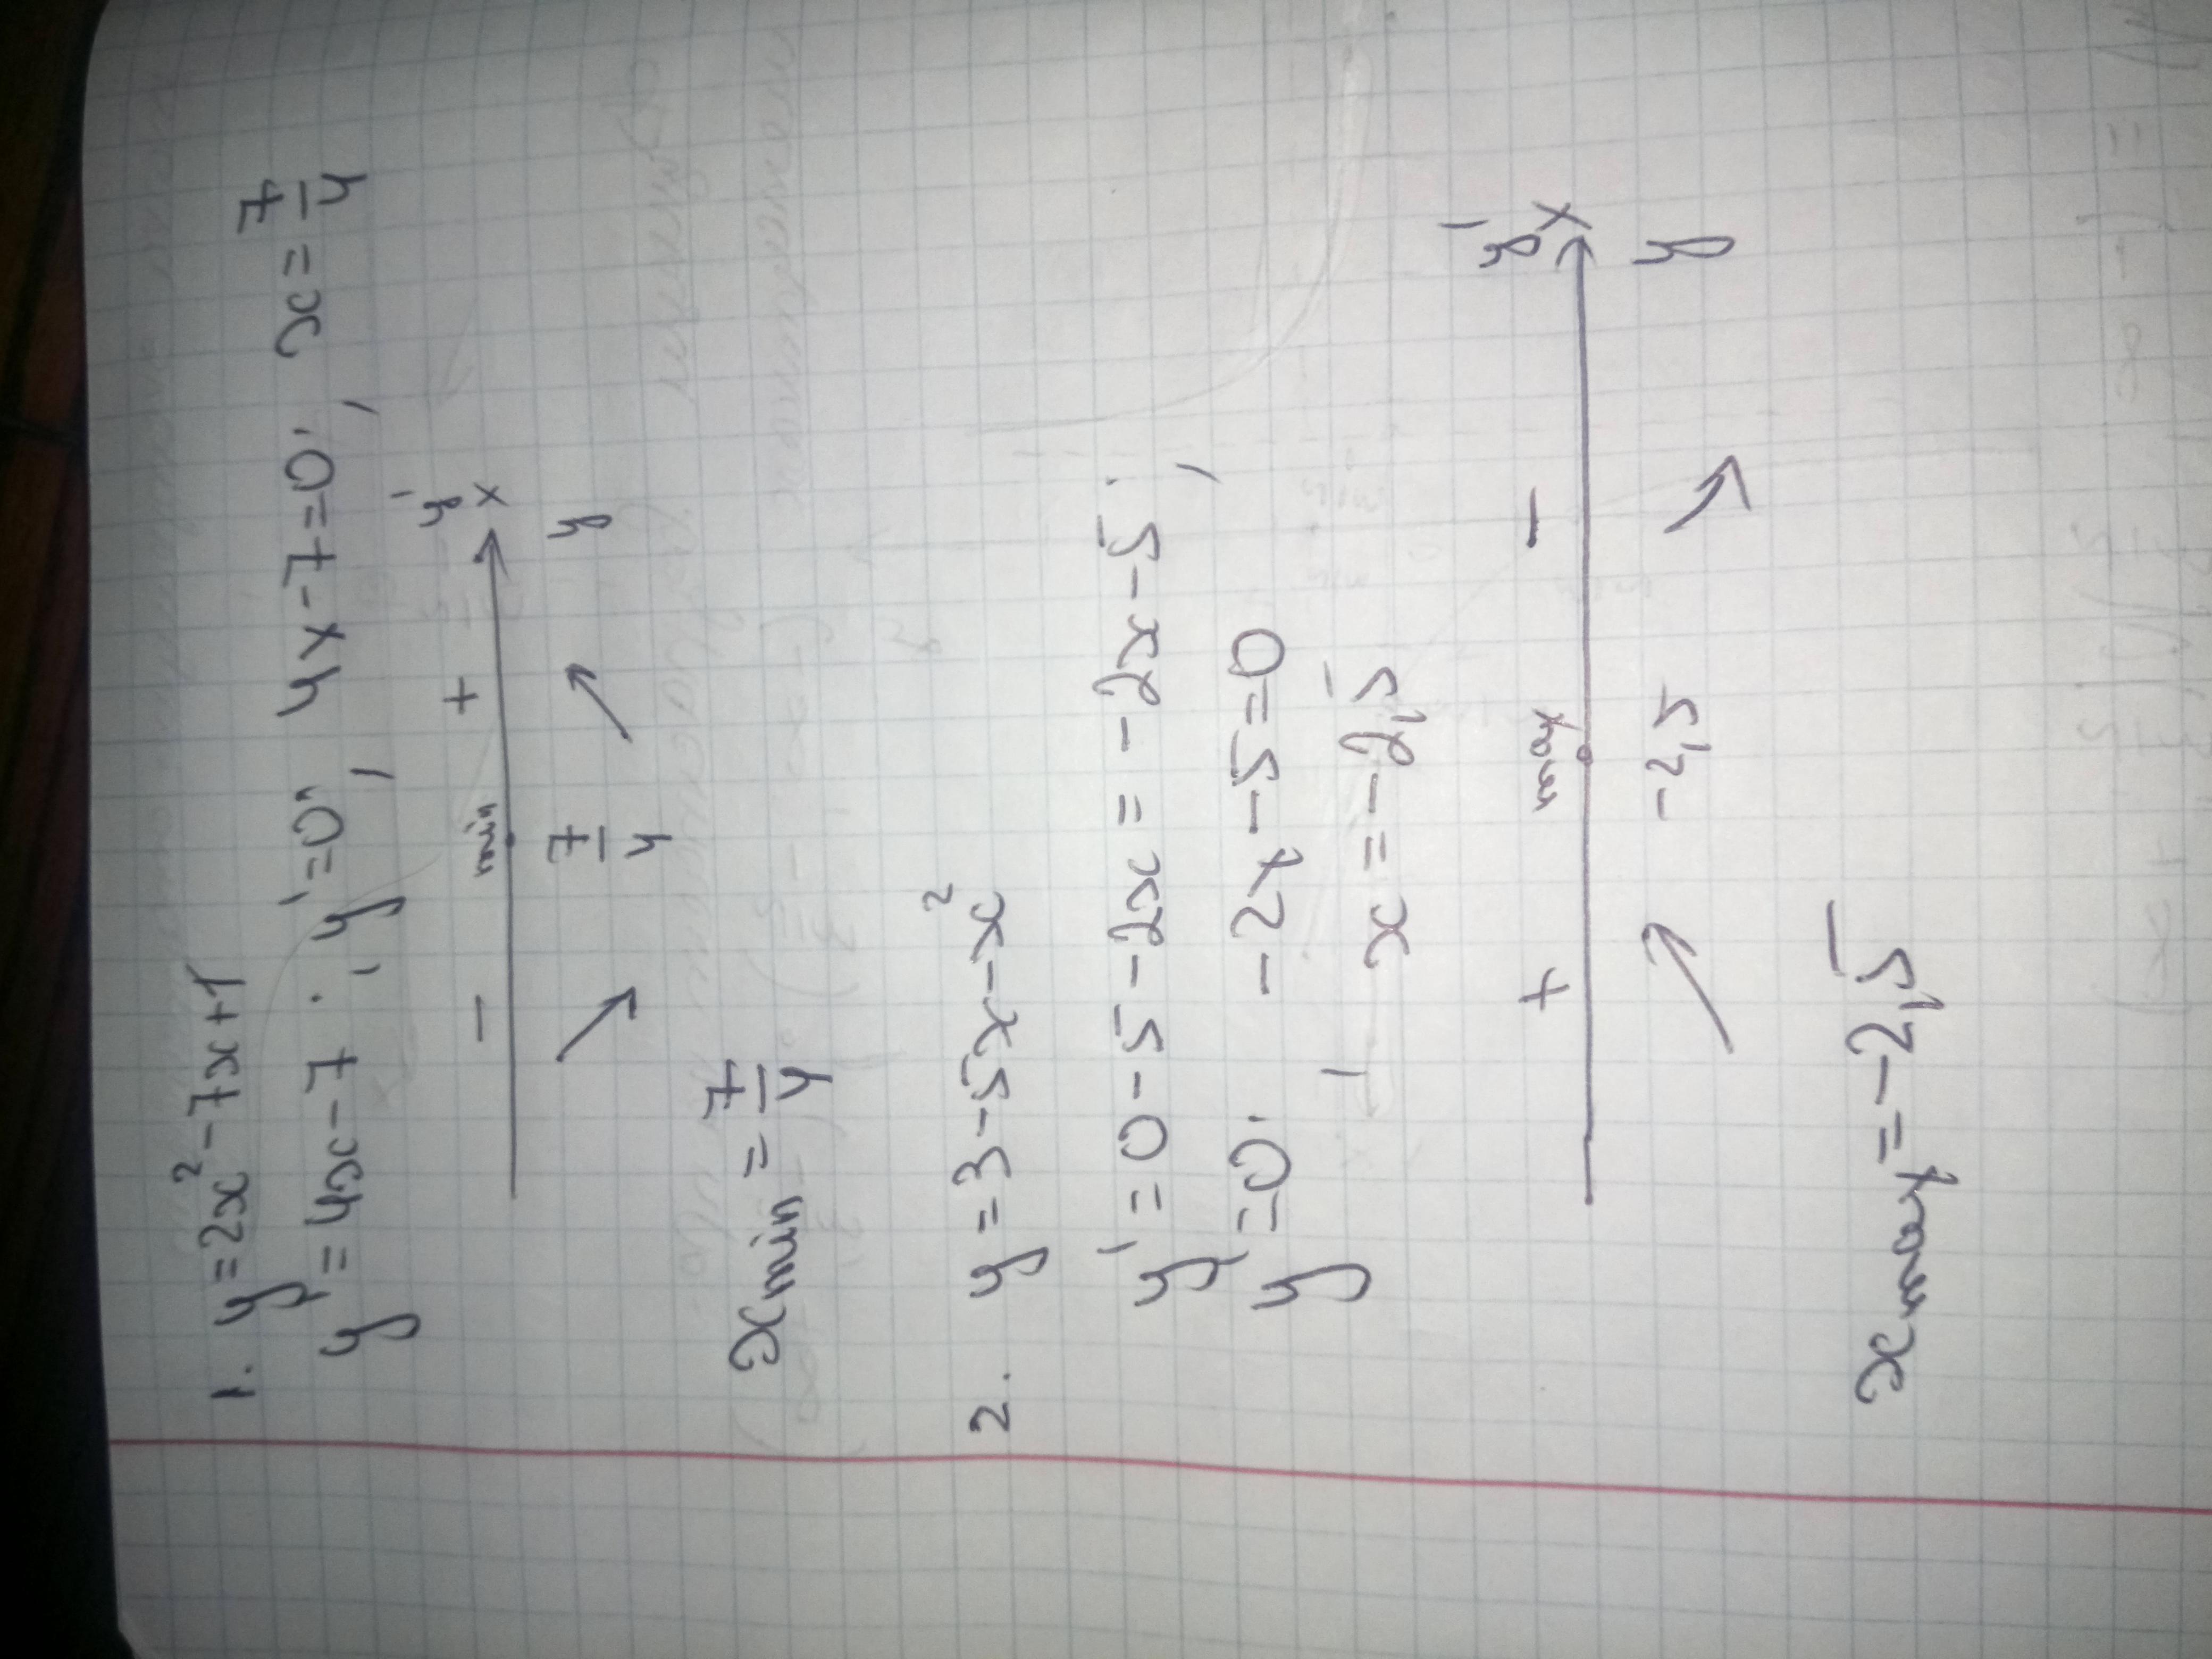 1. y=2x²-7x+1
y'=4x-7; y'=0; 4x-7=0; x=7/4
- min + y'
x
7/4 y
xmin=7/4
2. y=3-5x-x²
y'=0-5-2x=-2x-5;
y'=0; -2x-5=0
x=-2,5
+ max - y'
x
-2,5 y
xmax=-2,5